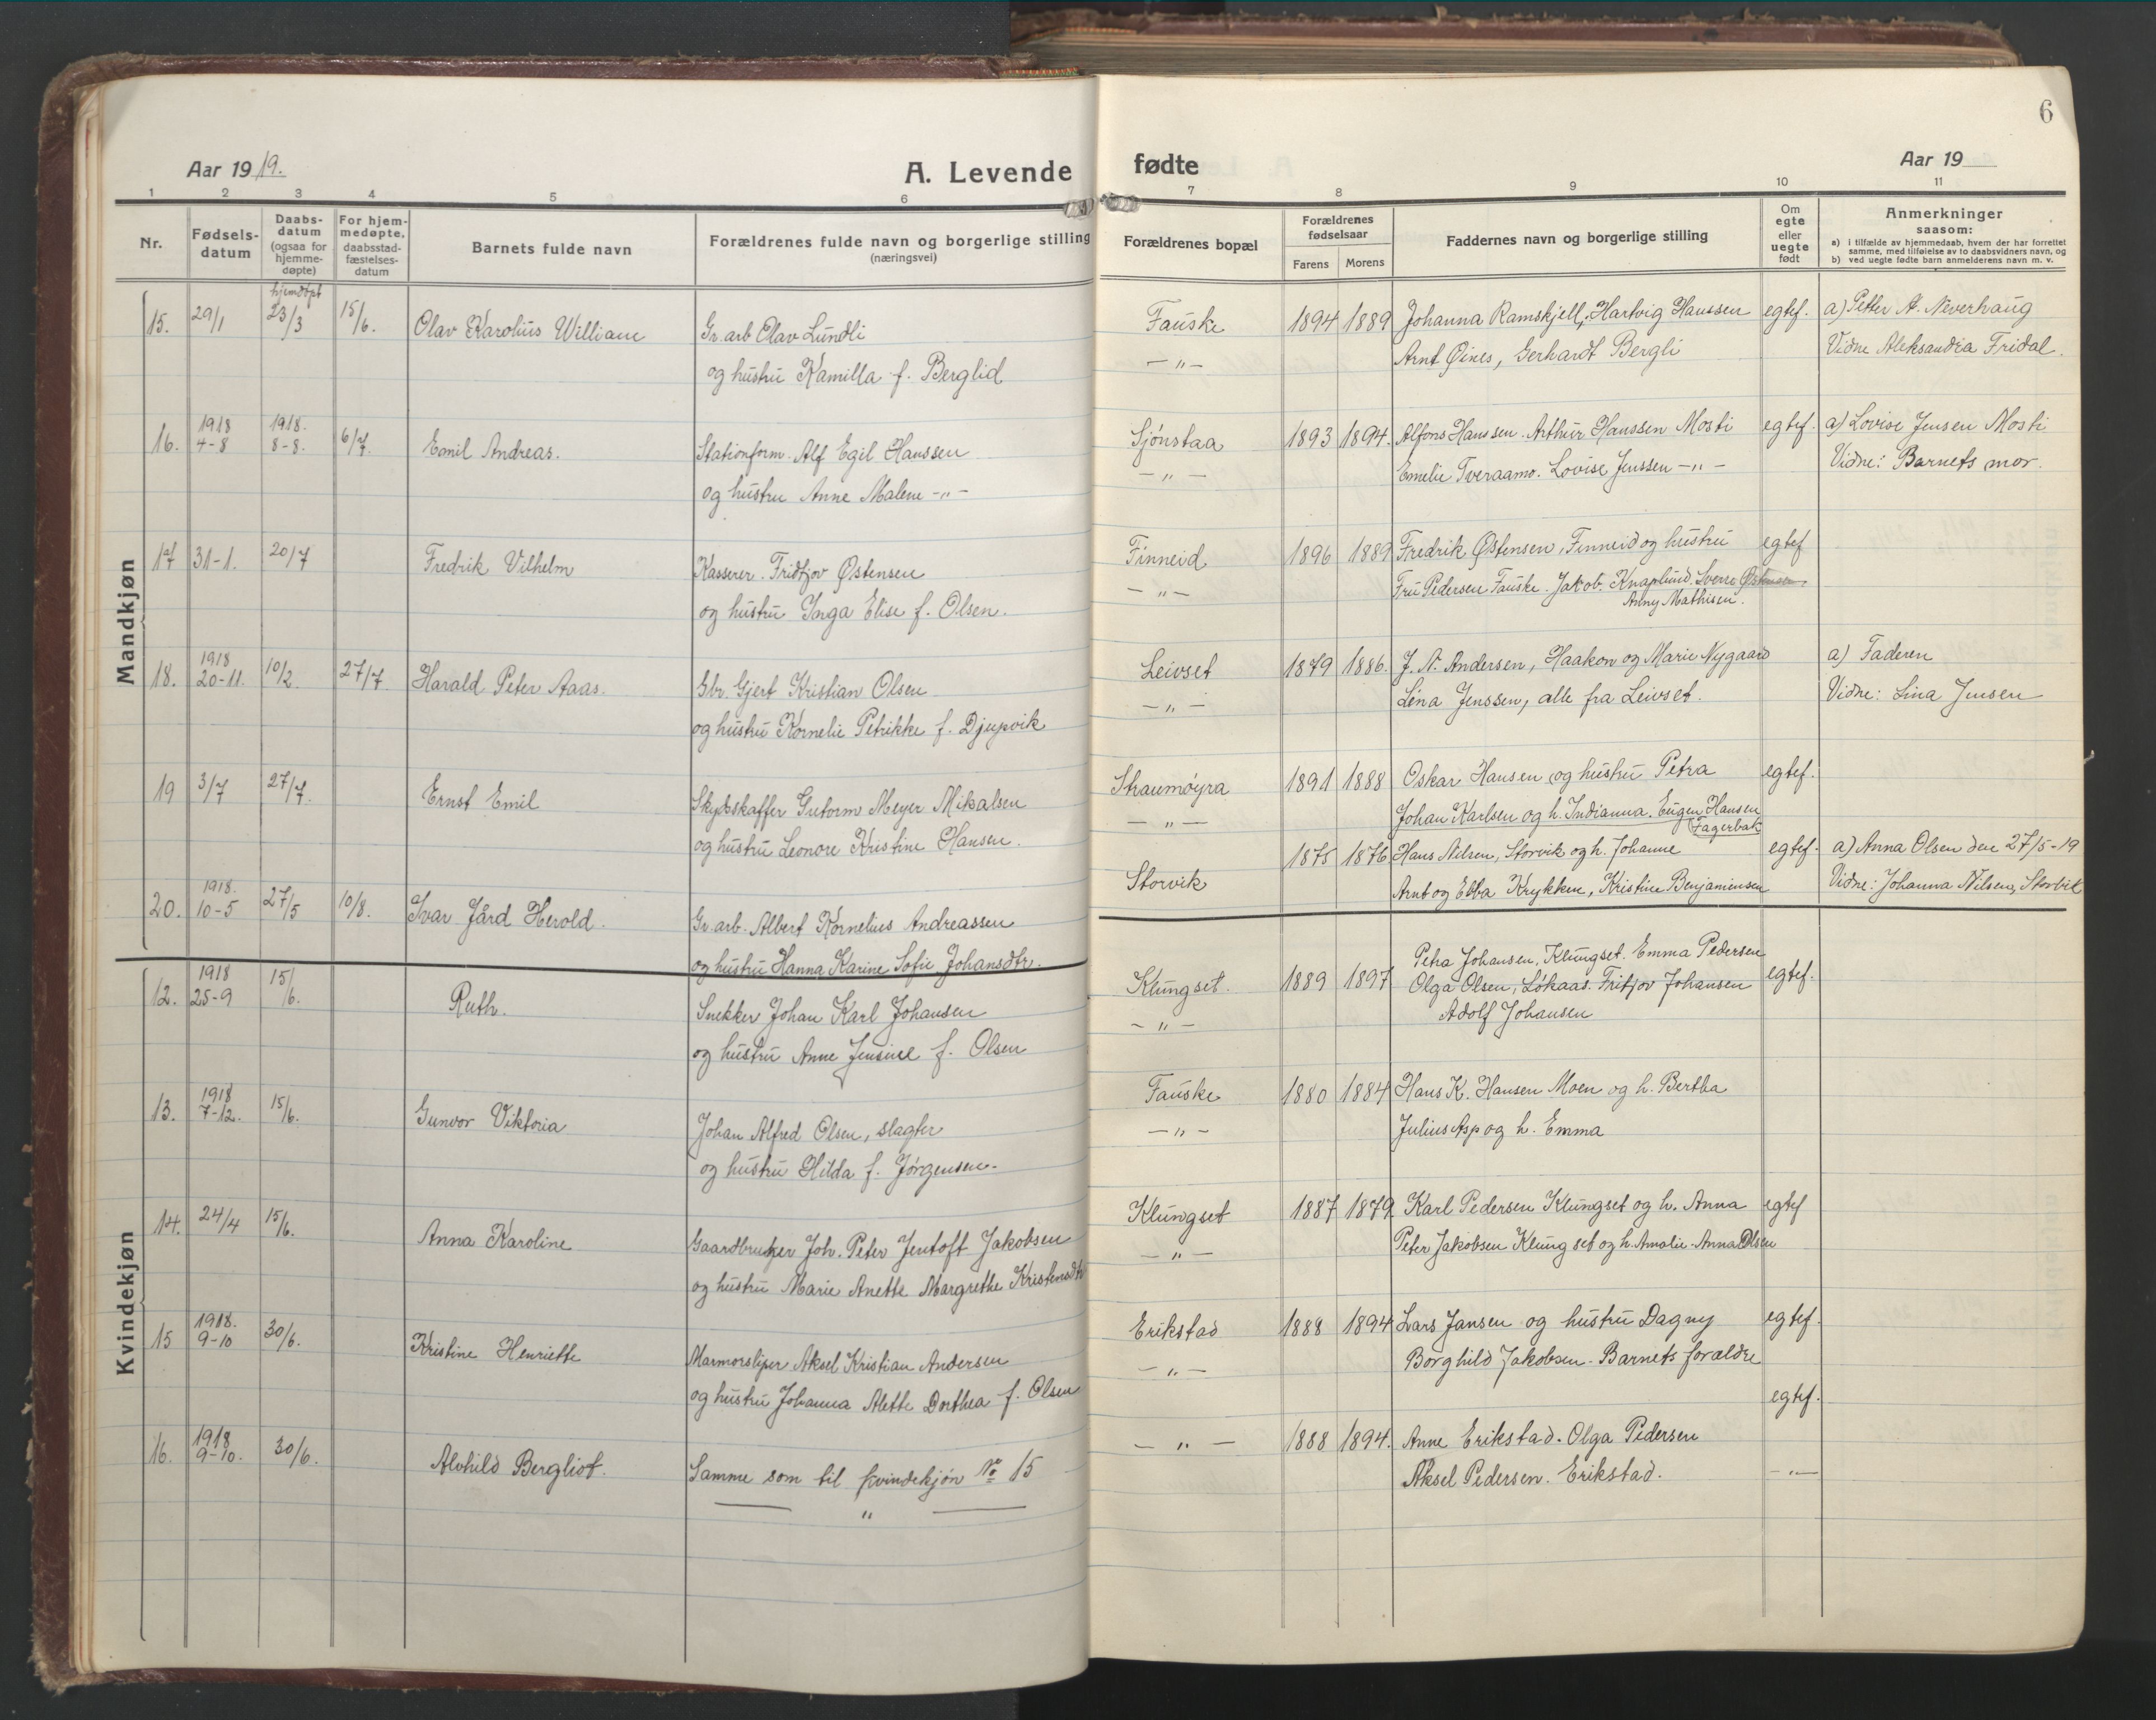 6
Aar 1919.
A. Levende fødte
Aar 19
1 2 3 4 5 6 7 8 9 10 11
Nr.
Fødsels-
datum
Daabs-
datum
(ogsaa for
hjemme-
døpte)
For hjem-
medøpte,
daabsstad-
fæstelses-
datum
Barnets fulde navn
Forældrenes fulde navn og borgerlige stilling
(næringsvei)
Forældrenes bopæl
Forældrenes
fødselsaar
Farens Morens
Faddernes navn og borgerlige stilling
Om
egte
eller
uegte
født
Anmerkninger
saasom:
a) i tilfælde av hjemmedaab, hvem der har forrettet
samme, med tilføielse av to daabsvidners navn, og
b) ved uegte fødte barn anmelderens navn m. v.
Mandkjøn
hjemdøpt
15. 29/1 23/3 15/6. Olav Karolius William Gr. arb Olav Lundli Fauske 1894 1889 Johanna Ramskjell, Hartvig Hanssen egtef. a) Petter A. Neverhaug
og hustru Kamilla f. Berglid -"- Arnt Øines, Gerhardt Bergli Vidne Aleksandra Fridal.
1918 1918.
16. 4-8 8-8. 6/7. Emil Andreas. Stationform. Alf Egil Hanssen Sjønstaa 1893 1894. Alfons Hanssen. Arthur Hanssen Mosti egtef. a) Lovise Jensen Mosti
og hustru Anne Malene -"- -"- Emelie Tveraamo. Lovise Jenssen -"- Vidne: Barnets mor.
17 31-1. 20/7 Fredrik Vilhelm Kasserer. Fridtjov Østensen Finneid 1896 1889 Fredrik Østensen, Finneid og hustru egtef
og hustru Inga Elise f. Olsen. -"- Fru Pedersen Fauske. Jakob Knaplund. Sverre Østensen.
Anny Mathisen.
1918
18. 20-11. 10/2 27/7 Harald Peter Aaas. Gbr. Gjert Kristian Olsen Leivset 1879 1886. J. A. Andersen, Haakon og Marie Nygaard a) Faderen
og hustru Kornelie Petrikke f. Djupvik -"- Lena Jenssen, alle fra Leivset. Vidne: Lina Jensen
19 3/7 27/7. Ernst Emil Skydsskaffer Gutorm Meyer Mikalsen Straumøyra 1891 1888 Oskar Hansen og hustru Petra egtef.
og hustru Leonore Kristine Hansen. -"- Johan Karlsen og h. Indianna. Eugen Hansen
Fagerbak
1918.
20. 10-5 27/5 10/8. Ivar Jård Herold. Gr. arb. Albert Kornelius Andreassen Storvik 1875 1876 Hans Nilsen, Storvik og h. Johanne egtef. a) Anna Olsen den 27/5-19
og hustru Hanna Karine Sofie Johansdtr. Arnt og Ebba Krykken, Kristine Benjaminsen Vidne: Johanna Nilsen, Storvik
Kvindekjøn
1918 Petra Johansen, Klungset. Emma Pedersen
12. 25-9 15/6. Ruth. Snekker Johan Karl Johansen Klungset. 1889 1897 Olga Olsen, Løkaas. Fritjov Johansen egtef.
og hustru Anne Jensine f. Olsen -"- Adolf Johansen
1918
13. 7-12. 15/6. Gunvor Viktoria Johan Alfred Olsen, slagter Fauske 1880 1884 Hans K. Hansen Moen og h. Bertha
og hustru Hilda f. Jørgensen. -"- Julius Asp og h. Emma
14. 24/4 15/6. Anna Karoline Gaardbruker Joh. Peter Jentoft Jakobsen Klungset 1887 1879 Karl Pedersen Klungset og h. Anna egtef
og hustru Marie Anette Margrethe Kristensdtr -"- Peter Jakobsen Klungset og h. Amalie. Anna Olsen
1918.
15 9-10 30/6. Kristine Henriette Marmorsliper Aksel Kristian Andersen Erikstad 1888 1894 Lars Jansen og hustru Dagny egtef.
og hustru Johanna Alette Dorthea f. Olsen -"- Borghild Jakobsen. Barnets forældre
egtef.
1918
16. 9-10. 30/6. Alvhild Bergliot. Samme som til kvindekjøn No 15 -"- 1888 1894. Anne Erikstad. Olga Pedersen
-"- Aksel Pedersen. Erikstad. -"-